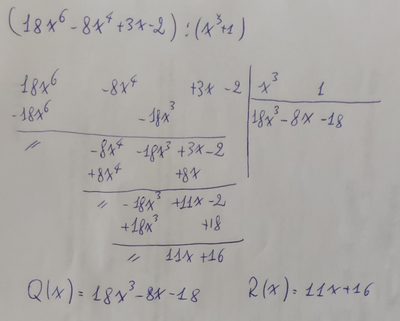 (18x⁶-8x⁴+3x-2):(x³+1)
18x⁶ -8x⁴ +3x -2 x³ 1
-18x⁶ -18x³ 18x³-8x-18
〃 -8x⁴ -18x³ +3x-2
+8x⁴ +8x
〃 -18x³ +11x-2
+18x³ +18
〃 11x+16
Q(x)=18x³-8x-18 R(x)=11x+16